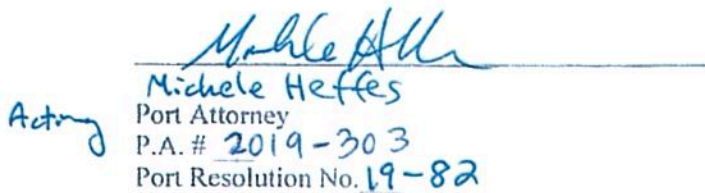 Michele Heffes
Acting Port Attorney
P.A. # 2019-303
Port Resolution No. 19-82